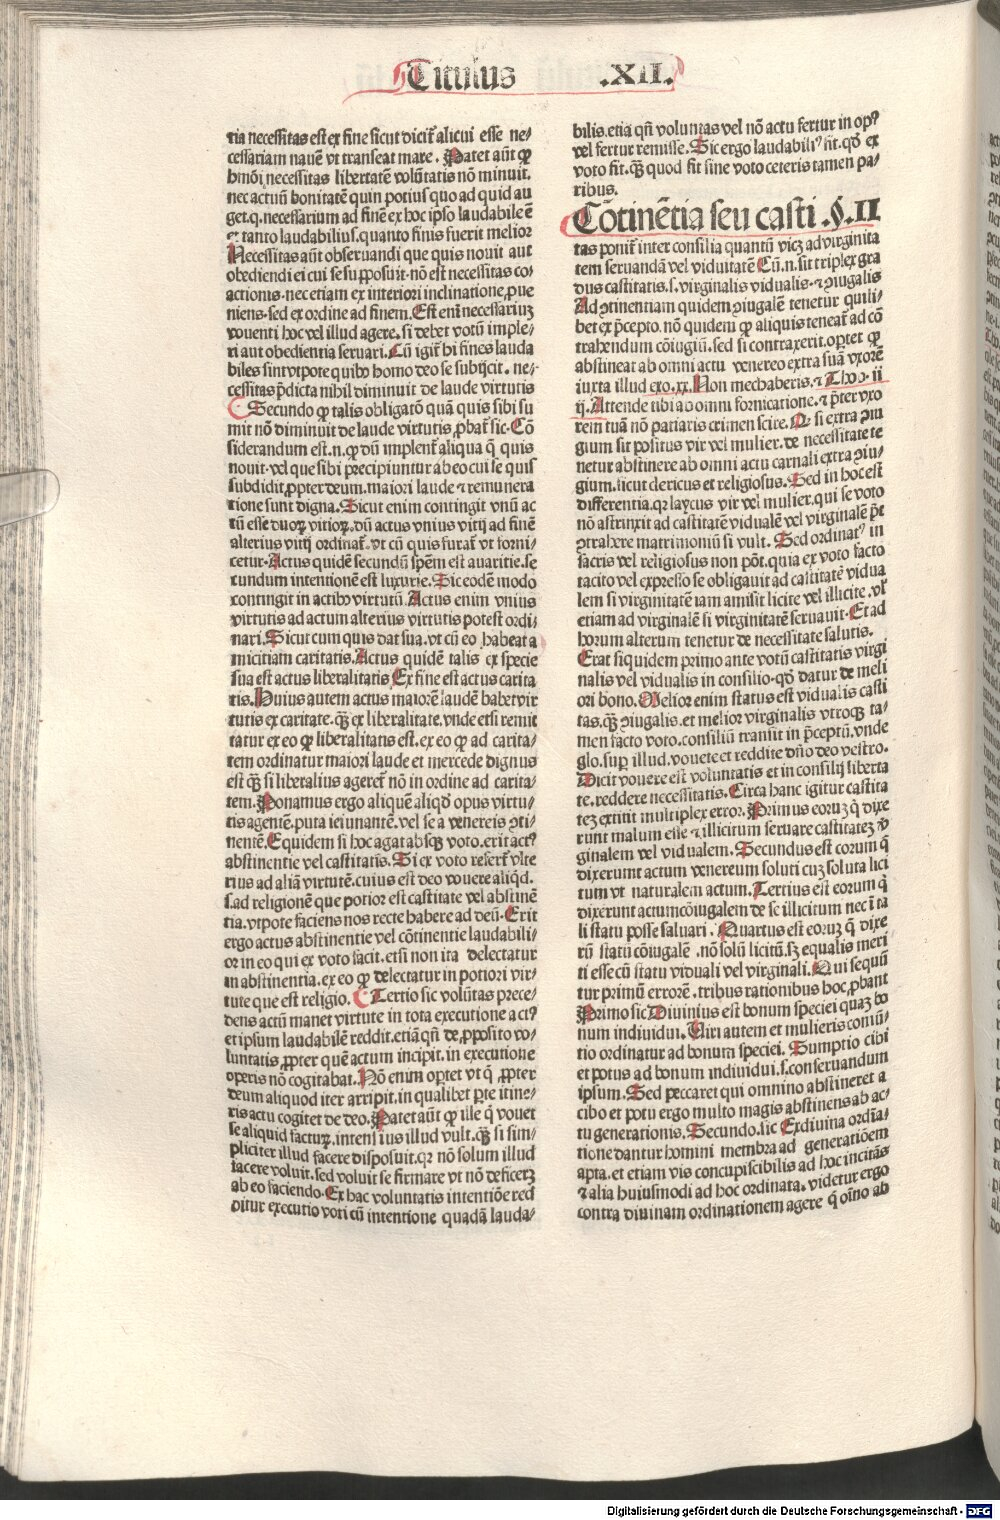 Titulus .XII.
tia necessitas est ex fine sicut dicit᷑ alicui esse ne/
cessariam nauē vt transeat mare. Patet aūt ꝙ
hmōi necessitas libertatē volūtatis nō minuit.
nec actuū bonitatē quin potius quo ad quid au
get. q. necessarium ad finē ex hoc ipso laudabile ē
⁊ tanto laudabilius. quanto finis fuerit melior
Necessitas aūt obseruandi que quis nouit aut
obediendi ei cui se supposuit. nō est necessitas co/
actionis. nec etiam ex interiori inclinatione ꝓue
niens. sed ex ordine ad finem. Est eni necessariuꝫ
vouenti hoc vel illud agere. si debet votū imple/
ri aut obedientia seruari. Cū igit᷑ hi fines lauda
biles sint vtpote quibꝰ homo deo se subijcit. ne/
cessitas p̄dicta nihil diminuit de laude virtutis
Secundo ꝙ talis obligatō quā quis sibi su
mit nō diminuit de laude virtutis ꝓbat᷑ sic. Cō
siderandum est .n. ꝙ dū implent᷑ aliqua q̄ quis
nouit. vel que sibi precipiuntur ab eo cui se quis
subdidit ꝓpter deum. maiori laude ⁊ remunera
tione sunt digna. Sicut enim contingit vnū ac
tū esse duoꝝ vitioꝝ. dū actus vnius vitij ad finē
alterius vitij ordinat᷑. vt cū quis furat᷑ vt forni/
cetur. Actus quidē secundū spēm est auaritie. se
cundum intentionē est luxurie. Sic eodē modo
contingit in actibꝰ virtutū. Actus enim vnius
virtutis ad actum alterius virtutis potest ordi/
nari. Sicut cum quis dat sua. vt cū eo habeat a
micitiam caritatis. Actus quidē talis ex specie
sua est actus liberalitatis Ex fine est actus carita
tis. Huius autem actus maiorē laudē habet vir
tutis ex caritate. qꝫ ex liberalitate. vnde etsi remit
tatur ex eo ꝙ liberalitatis est. ex eo ꝙ ad carita/
tem ordinatur maiori laude et mercede dignus
est qꝫ si liberalius ageret᷑ nō in ordine ad carita/
tem. Ponamus ergo aliquē aliqd̄ opus virtu/
tis agentē. puta ieiunantē. vel se a venereis ꝯti/
nentē. Equidem si hoc agat absqꝫ voto. erit actꝰ
abstinentie vel castitatis. Si ex voto refert᷑ vlte
rius ad aliā virtutē. cuius est deo vouere aliqd̄.
s. ad religionē que potior est castitate vel abstinē
tia. vtpote faciens nos recte habere ad deū. Erit
ergo actus abstinentie vel cōtinentie laudabili/
or in eo qui ex voto facit. etsi non ita delectatur
in abstinentia. ex eo ꝙ delectatur in potiori vir/
tute que est religio. Tertio sic volūtas prece/
dens actū manet virtute in tota executione actꝰ
et ipsum laudabilē reddit. etiā qn̄ de ꝓposito vo/
luntatis ꝓpter quē actum incipit. in executione
operis nō cogitabat. Nō enim oꝑtet vt q̇ ꝓpter
deum aliquod iter arripit. in qualibet ꝑte itine/
ris actu cogitet de deo. Patet aūt ꝙ ille q̇ vouet
se aliquid facturꝝ. intensius illud vult. qꝫ si sim/
pliciter illud facere disposuit. qꝛ nō solum illud
facere voluit. sed voluit se firmare vt nō deficeret
ab eo faciendo. Ex hac voluntatis intentiōe red
ditur executio voti cū intentione quadā lauda/
bilis. etiā qn̄ voluntas vel nō actu fertur in opꝰ
vel fertur remisse. Sic ergo laudabiliꝰ fit. qd̄ ex
voto fit. qꝫ quod fit sine voto ceteris tamen pa/
ribus.
Cōtinētia seu casti .§.II
tas ponit᷑ inter consilia quantū vicꝫ ad virginita
tem seruandā vel viduitatē Cū .n. sit triplex gra
dus castitatis. s. virginalis vidualis. ⁊ ꝯiugalis
Ad ꝯtinentiam quidem ꝯiugalē tenetur quili/
bet ex p̄cepto. nō quidem ꝙ aliquis teneat᷑ ad cō
trahendum cōiugiū. sed si contraxerit. oꝑtet ꝙ
abstineat ab omni actu venereo extra suā vxorē
iuxta illud exo. xx. Non mechaberis. ⁊ Thob. ii
ij. Attende tibi ab omni fornicatione. ⁊ p̄ter vxo
rem tuā nō patiaris crimen scire. Qꝛ si extra ꝯiu
gium sit positus vir vel mulier. de necessitate te
netur abstinere ab omni actu carnali extra ꝯiu/
gium. sicut clericus et religiosus. Sed in hoc est
differentia. qꝛ laycus vir vel mulier. qui se voto
nō astrinxit ad castitatē vidualē vel virginalē p̄t
ꝯtrahere matrimoniū si vult. Sed ordinatꝰ in
sacris vel religiosus non pōt. quia ex voto facto
tacito vel expresso se obligauit ad castitatē vidua
lem si virginitatē iam amisit licite vel illicite. vl̓
etiam ad virginalē si virginitatē seruauit. Et ad
horum alterum tenetur de necessitate salutis.
Erat siquidem primo ante votū castitatis virgi
nalis vel vidualis in consilio. qd̄ datur de meli
ori bono. Melior enim status est vidualis casti
tas. qꝫ ꝯiugalis. et melior virginalis vtroqꝫ ta/
men facto voto. consiliū transit in p̄ceptū. vnde
glo. suꝑ illud. vouete et reddite dn̄o deo vestro.
Dicit vouere est voluntatis et in consilij liberta
te. reddere necessitatis. Circa hanc igitur castita
teꝫ extitit multiplex error. Primus eoruꝫ q̇ dixe
runt malum esse ⁊ illicitum seruare castitateꝫ v̓
ginalem vel vidualem. Secundus est eorum q̇
dixerunt actum venereum soluti cuꝫ soluta lici
tum vt naturalem actum. Tertius est eorum q̇
dixerunt actum cōiugalem de se illicitum nec ī ta
li statu posse saluari. Quartus est eoruꝫ q̇ dixe
rū statū cōiugalē .nō solū licitū. sꝫ equalis meri
ti esse cū statu viduali vel virginali. Qui sequū
tur primū errorē. tribus rationibus hoc ꝓbant
Primo sic Diuinius est bonum speciei quaꝫ bo
num indiuidui. Uiri autem et mulieris coniū/
tio ordinatur ad bonum speciei. Sumptio cibi
et potus ad bonum indiuidui. s. conseruandum
ipsum. Sed peccaret qui omnino abstineret a
cibo et potu ergo multo magis abstinens ab ac/
tu generationis. Secundo. sic Ex diuina ordīa/
tione dantur homini membra ad generatiōem
apta. et etiam vis concupiscibilis ad hoc incitās
⁊ alia huiusmodi ad hoc ordinata. videtur ergo
contra diuinam ordinationem agere q̇ oīno ab
Digitalisierung gefördert durch die Deutsche Forschungsgemeinschaft - DFG